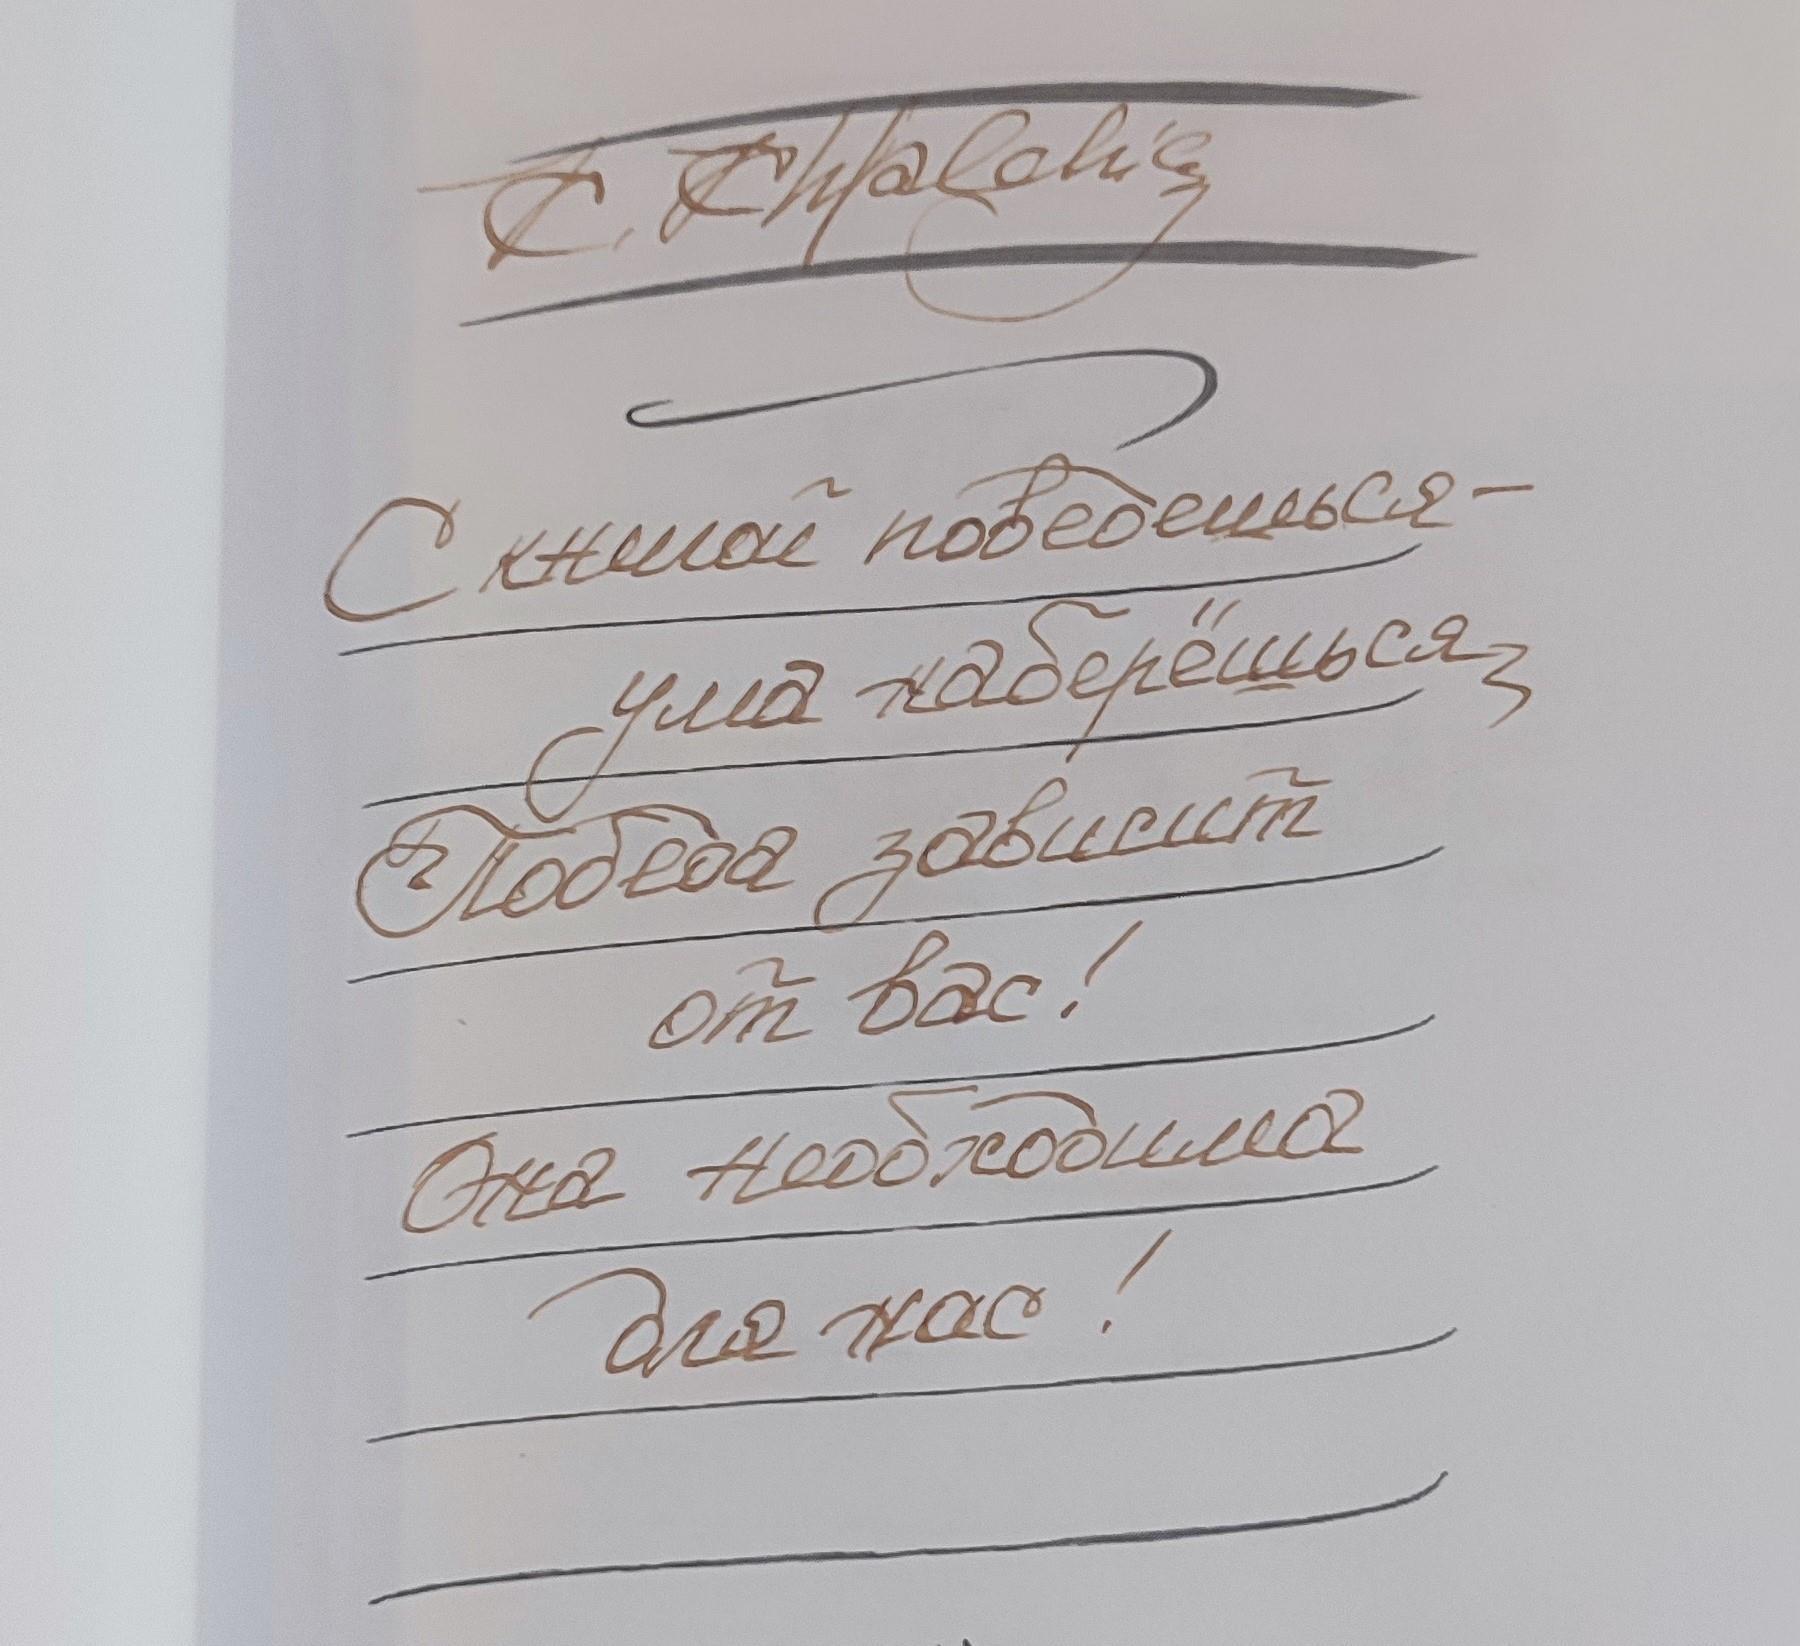 С книгой поведешься –
ума наберёшься,
Победа зависит
от вас!
Она необходима
для нас!